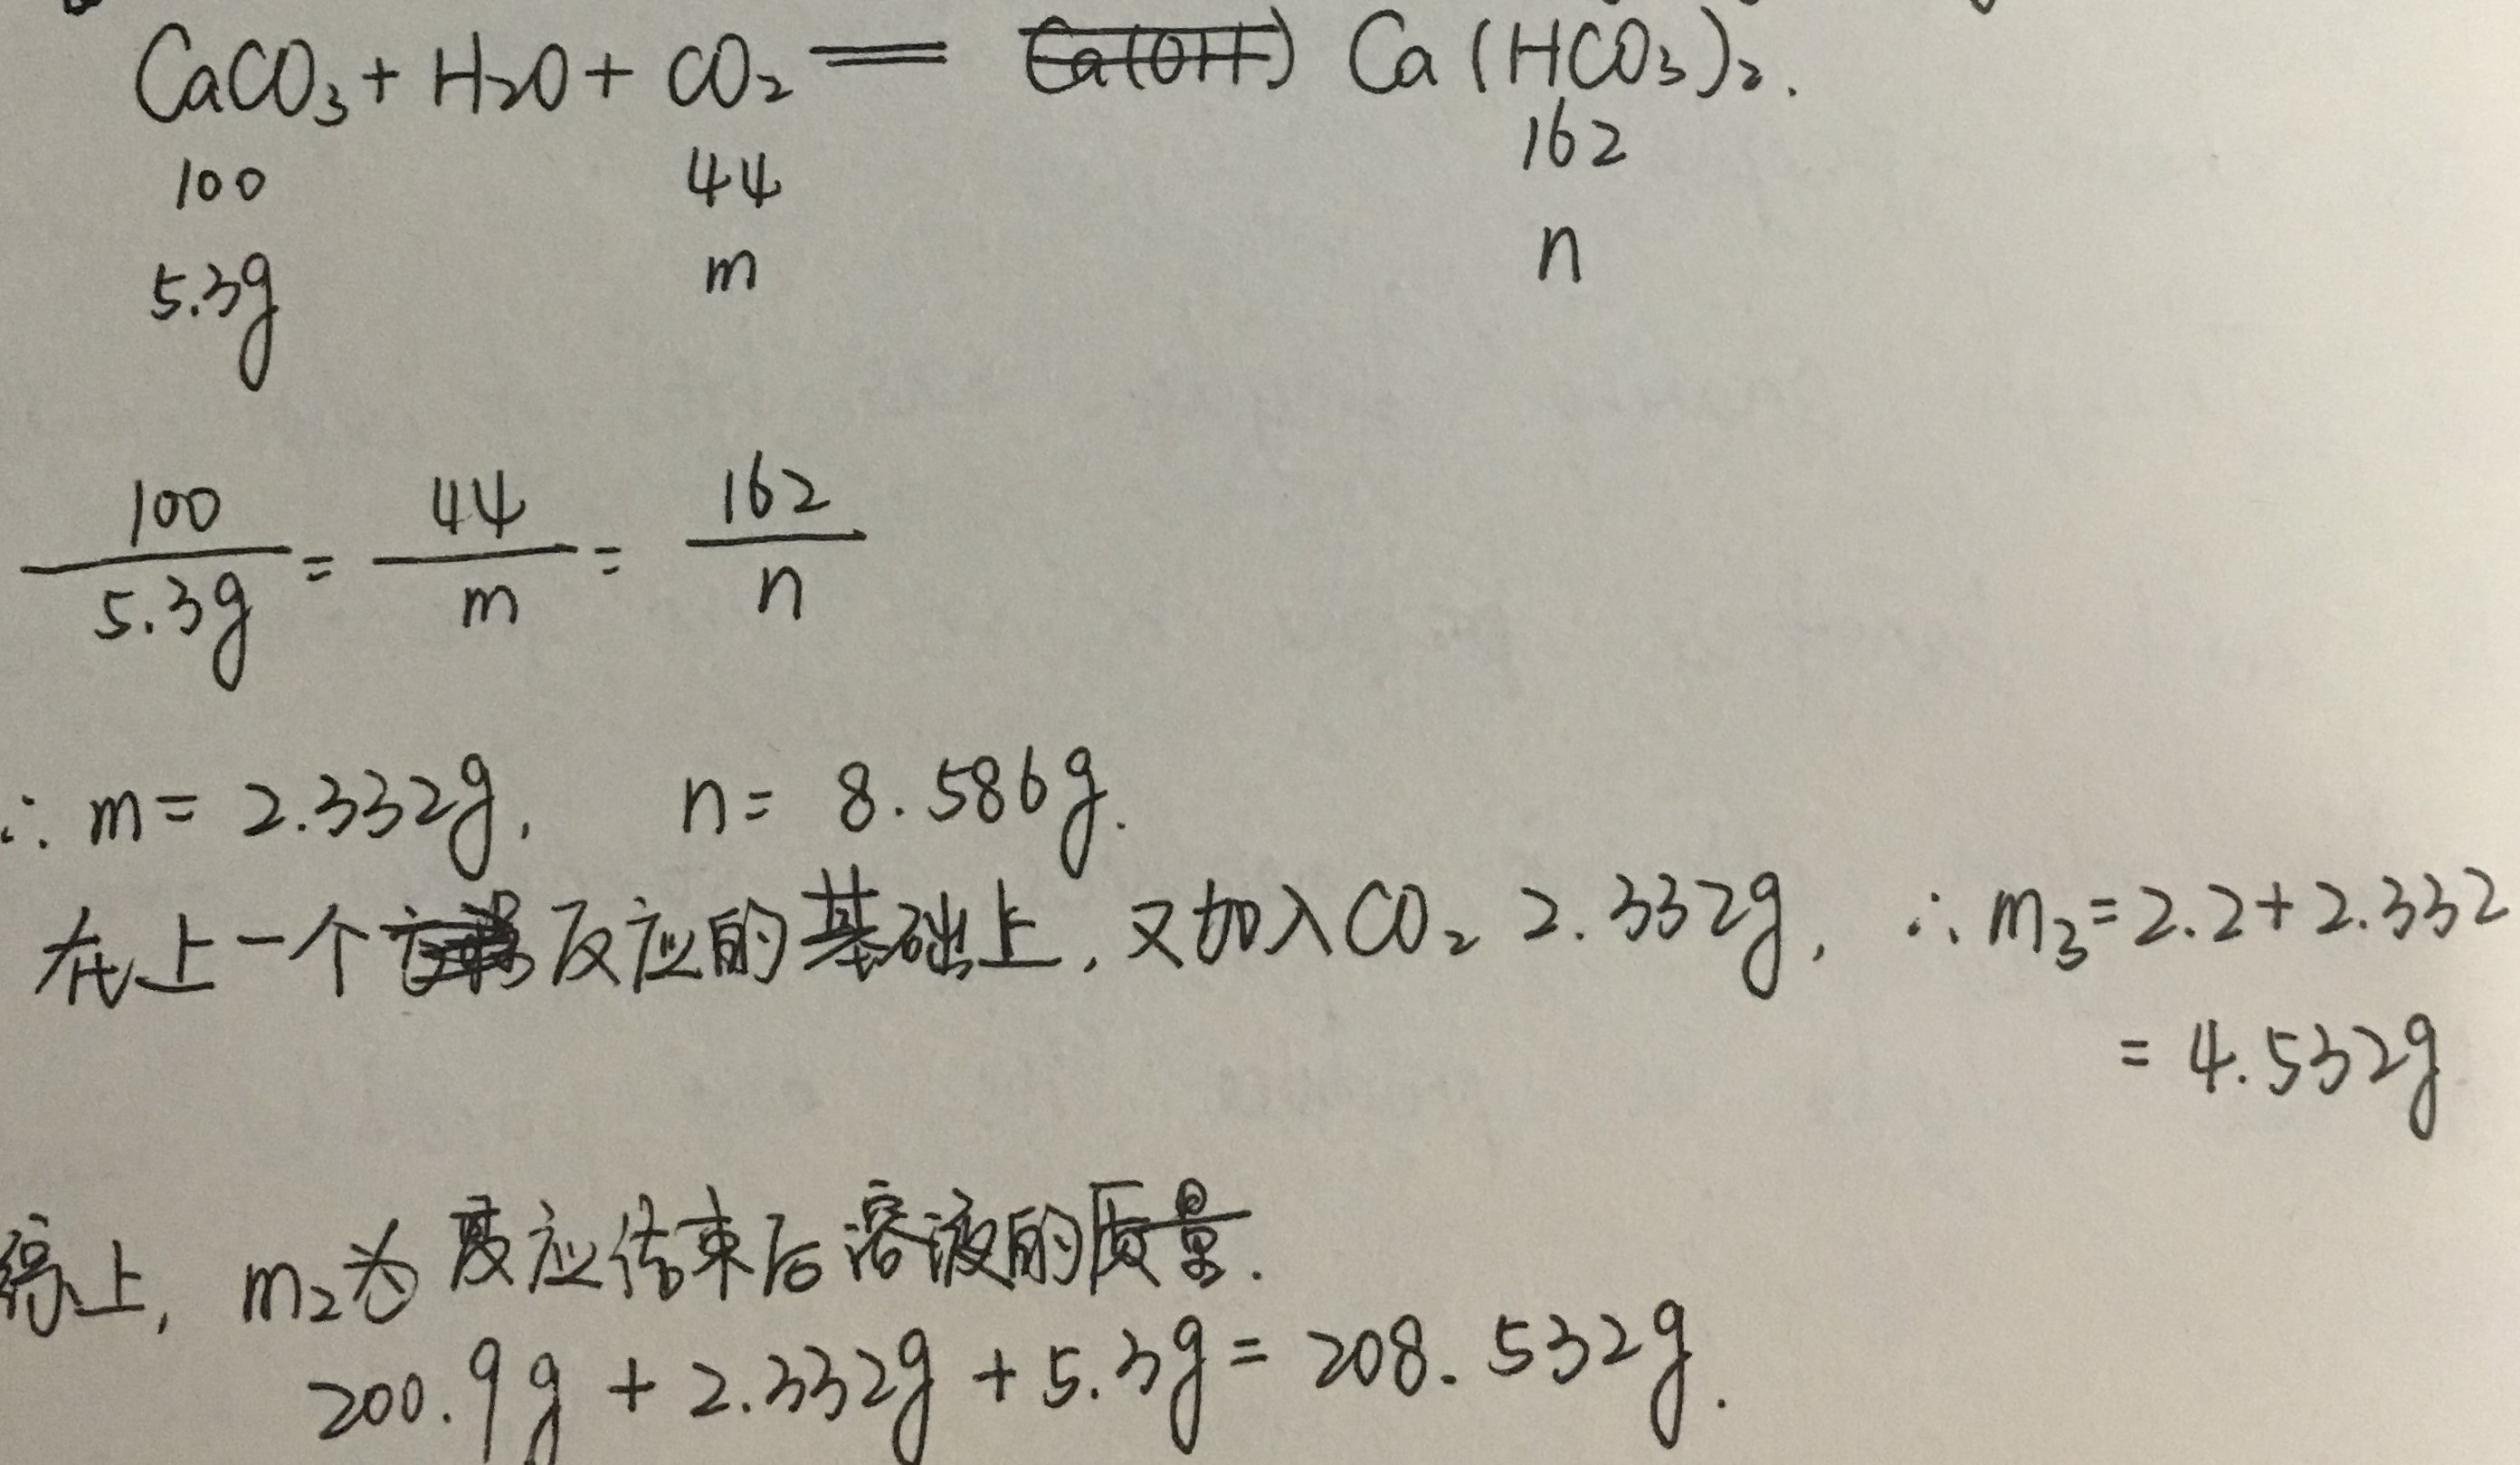 CaCO₃ + H₂O + CO₂ == Ca(HCO₃)₂.
100 44 162
5.3g m n
100/5.3g = 44/m = 162/n
∴ m = 2.332g, n = 8.586g.
在上一个反应的基础上,又加入CO₂ 2.332g, ∴ m₃ = 2.2 + 2.332
= 4.532g
综上, m₂为反应结束后溶液的质量.
200.9g + 2.332g + 5.3g = 208.532g.